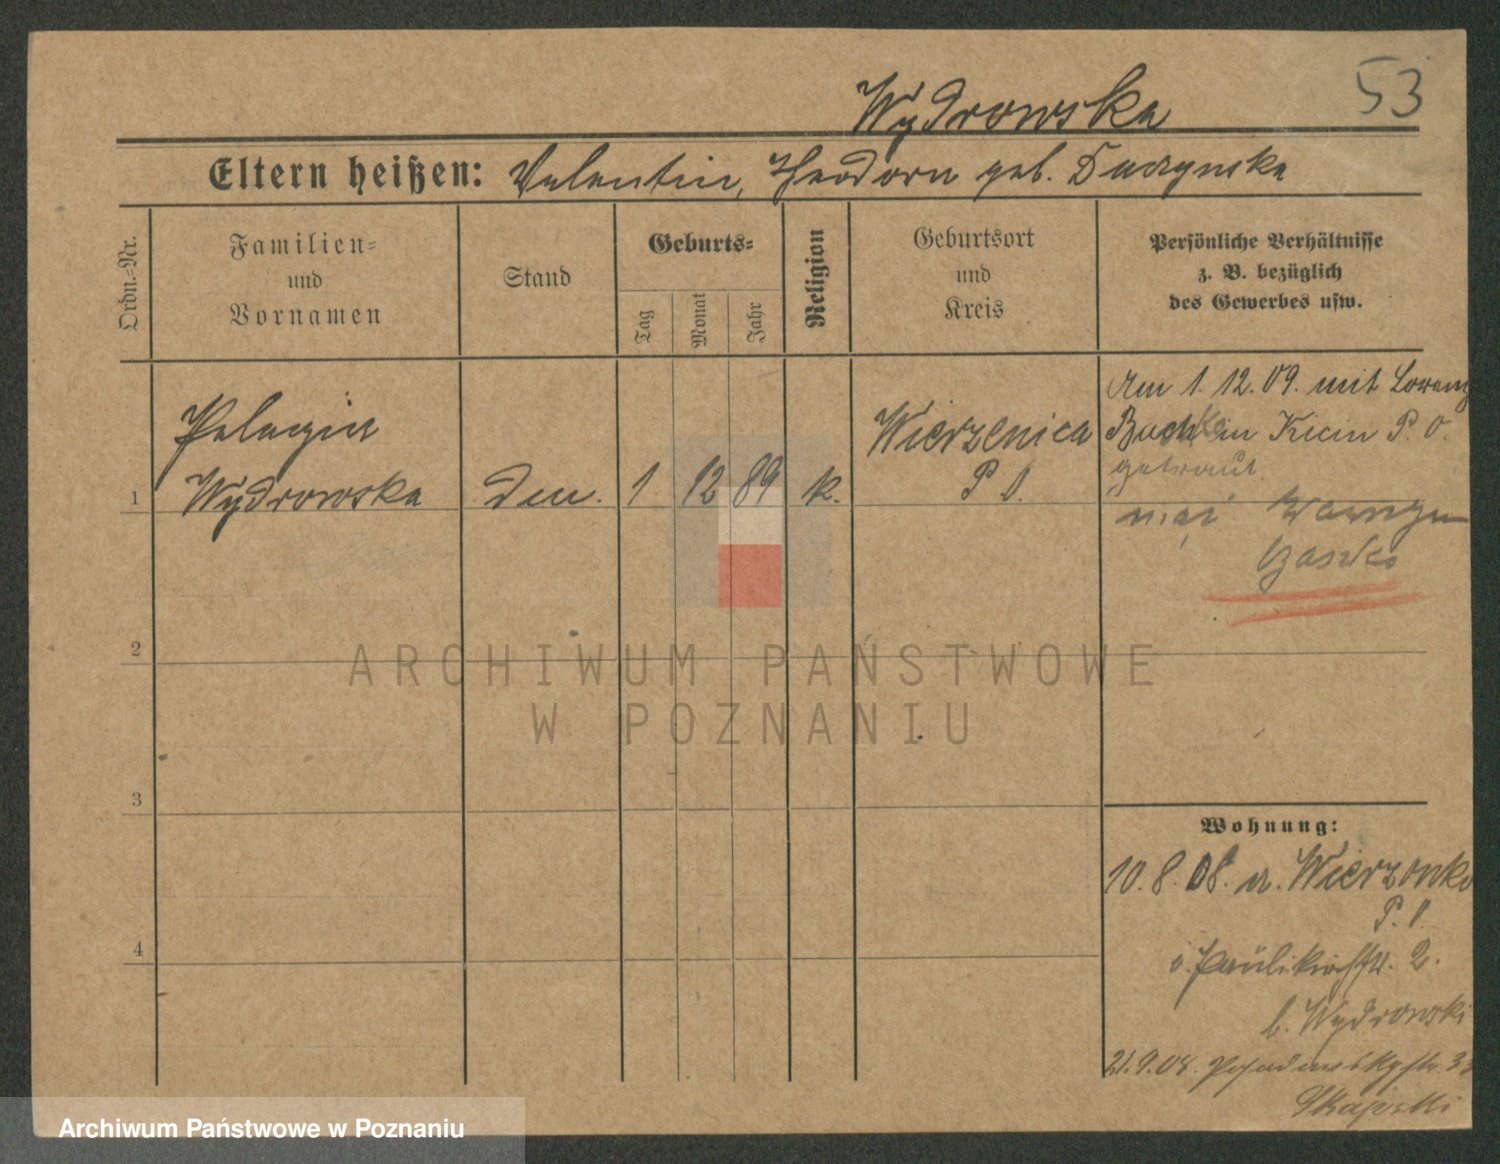 53
Wydrowska
Eltern heißen: Valentin, Theodora geb. Duszynska
Ordn.-Nr.
Familien-
und
Vornamen
Stand
Geburts-
Tag
Monat
Jahr
Religion
Geburtsort
und
Kreis
Persönliche Verhältnisse
z. B. bezüglich
des Gewerbes usw.
1
Pelagia
Wydrowska
1
12
89
k.
Wierzenica
P. O.
Am 1. 12. 09. mit Lorenz
in Kicin P. O.
getraut.
mąż Wawrzyn
2
3
4
Wohnung:
10. 8. 08. a. Wierzonka
P. O.
Paulikirchstr. 2.
b. Wydrowski
21. 9. 08.
ARCHIWUM PAŃSTWOWE
W POZNANIU
Archiwum Państwowe w Poznaniu